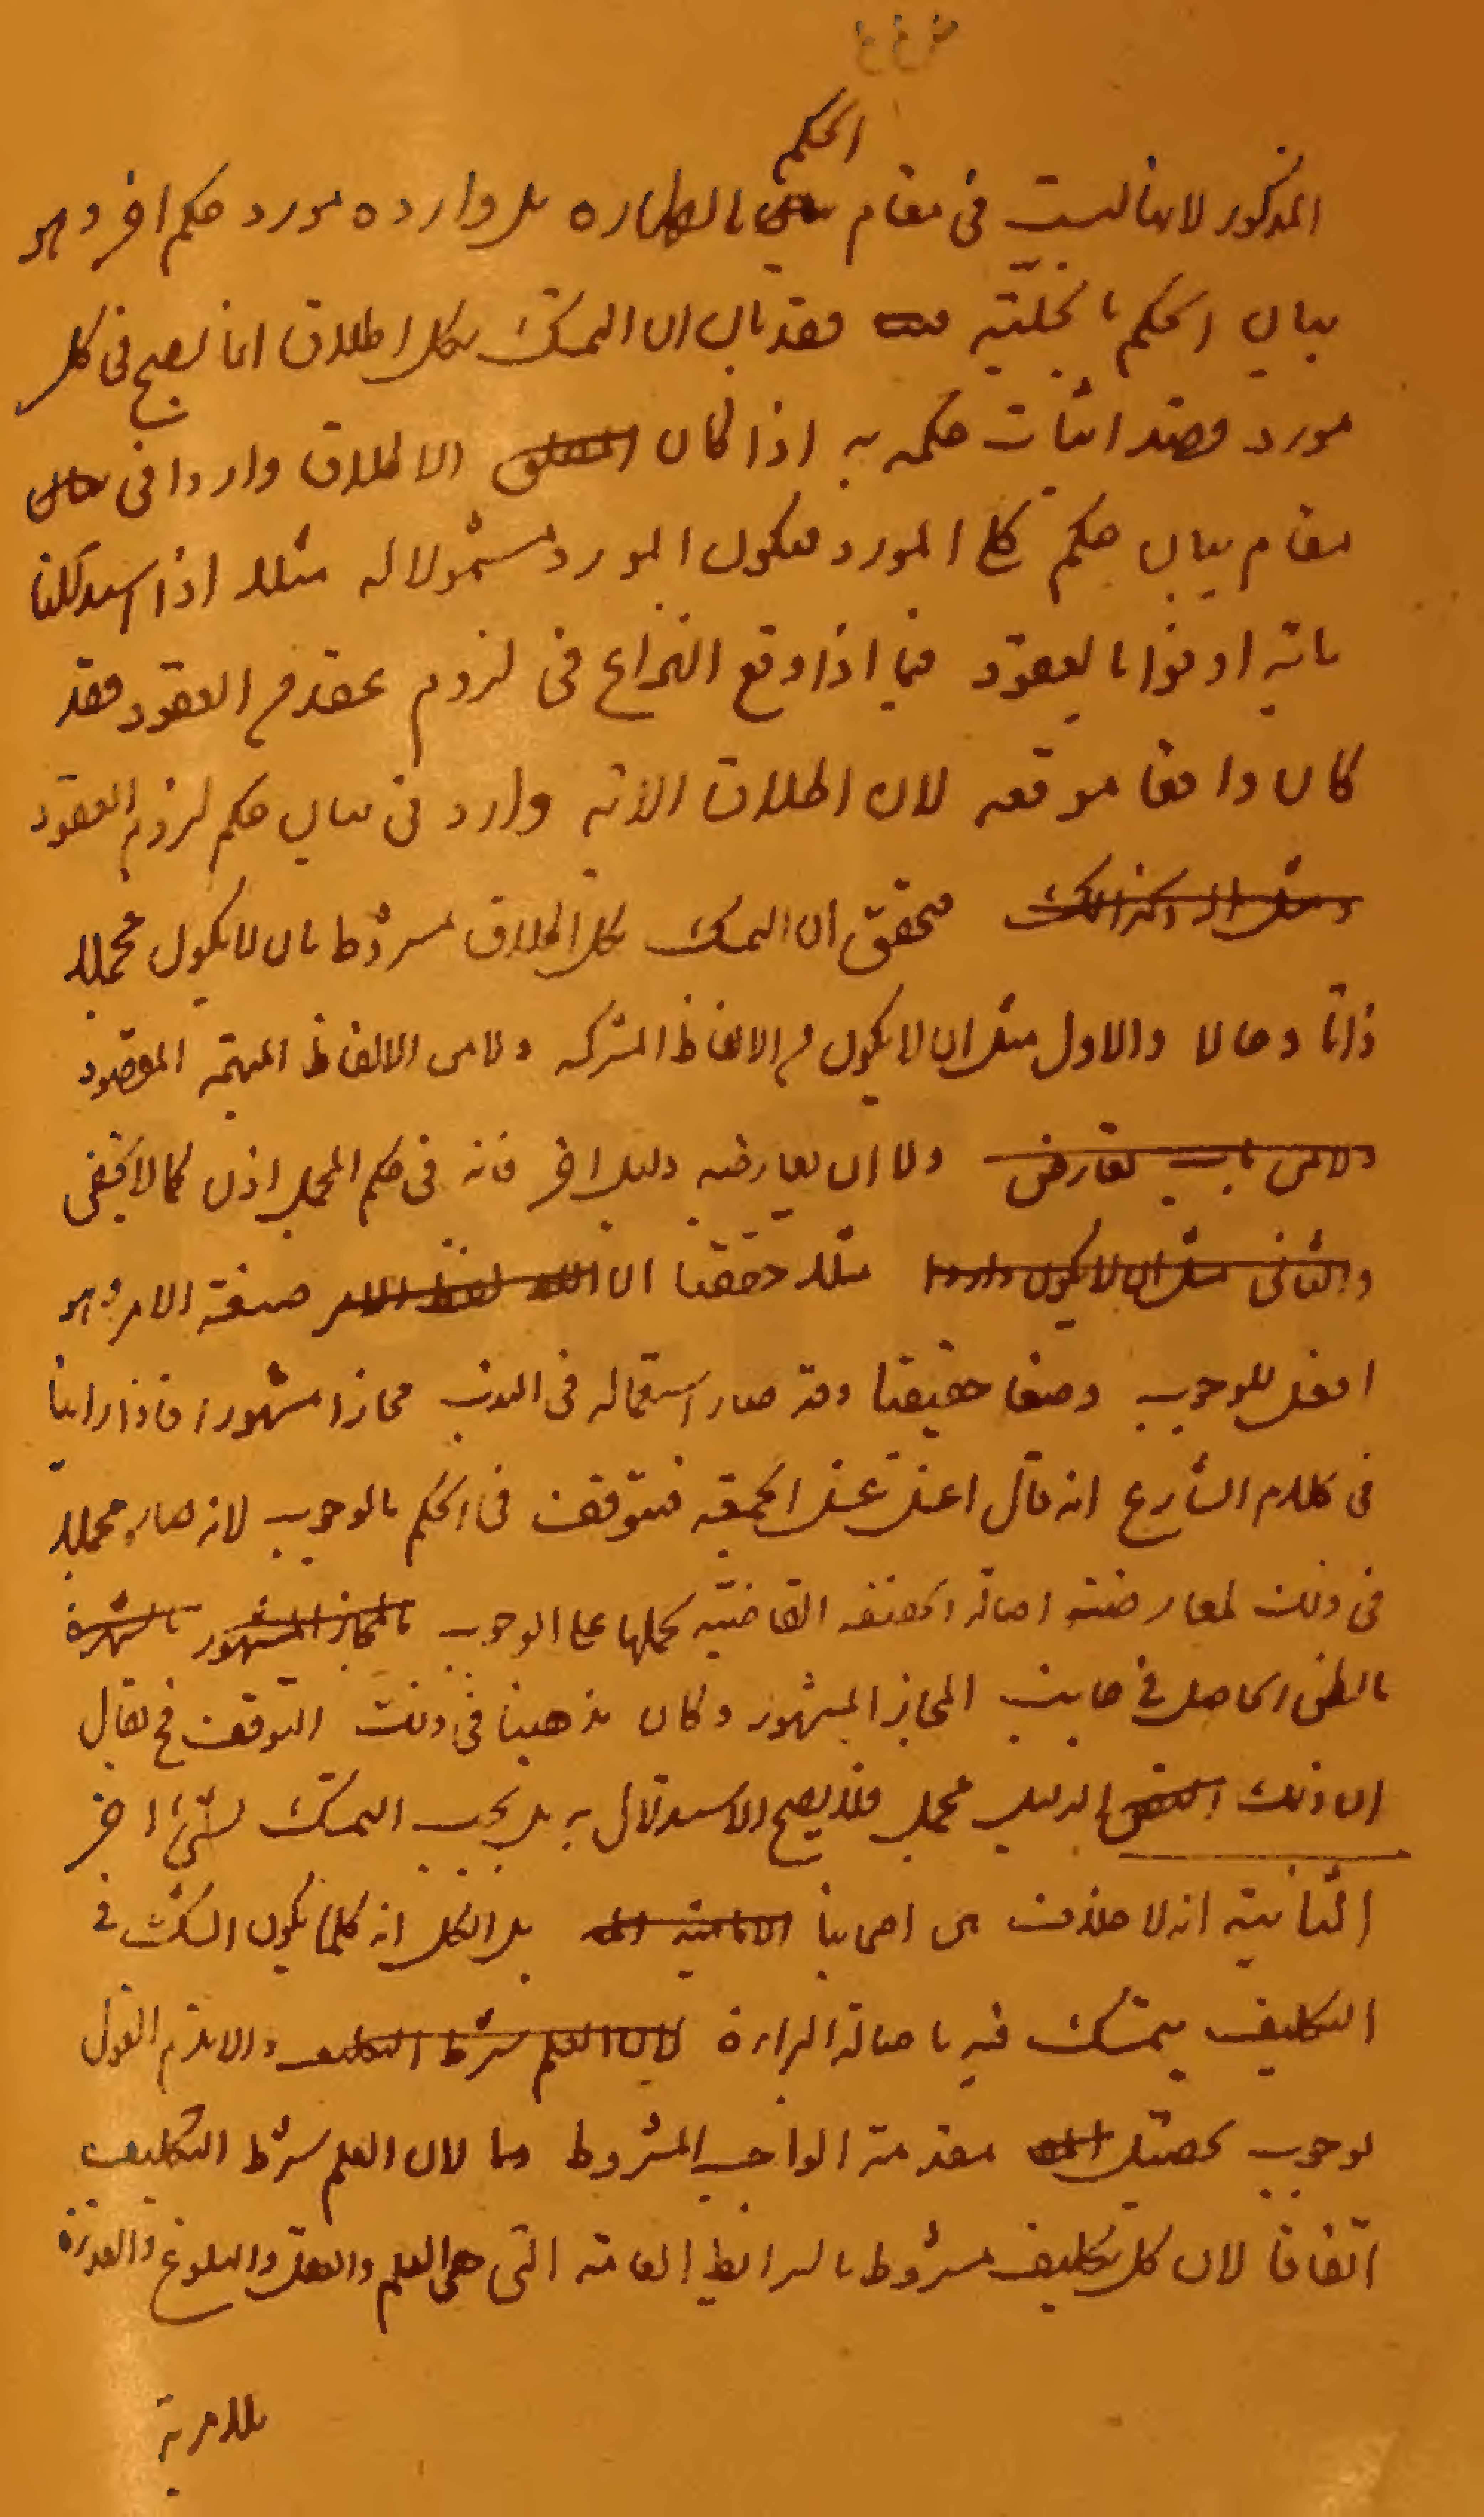 الحكم
المذكور لانها ليست فى مقام بالطهاره بل وارده مورد حكم اخر وهو
بيان الحكم بالحليّة فقد بان ان التمسّك بكل اطلاق انما يصح فى كل
مورد قصد اثبات حكمه به اذا كان المطلق الاطلاق واردا فى
مقام بيان حكم كلّ المورد فيكون المورد مشمولا له مثلا اذا استدللنا
باية اوفوا بالعقود فيما اذا وقع النزاع فى لزوم عقد من العقود فقد
كان واقعا موقعه لان اطلاق الاية وارد فى بيان حكم لزوم العقود
وكذالك فتحقق ان التمسك بكل اطلاق مشروط بان لا يكون مجملا
ذاتا وحالا والاول مثل ان لا يكون من الالفاظ المشتركه ولا من الالفاظ المبهمة المقصود
ولا من باب تعارض ولا ان يعارضه دليل اخر فانه فى حكم المجمل اذن كما لا يخفى
والثانى مثل ان لا يكون واردا مثلا حققنا ان لفظ الامر صيغة الامر وهو
افعل للوجوب وضعا حقيقتا وقد صار استعماله فى الندب مجازا مشهورا فاذا راينا
فى كلام الشارع انه قال اغتسل غسل الجمعة فنتوقف فى الحكم بالوجوب لانه صار مجملا
فى ذلك لمعارضته اصالة الحقيقه القاضيّة بحملها على الوجوب بالمجاز المشهور بالشهرة
بالظن الحاصل فى جانب المجاز المشهور وكان مذهبنا فى ذلك التوقف فح نقال
ان ذلك الدليل مجمل فلا يصح الاستدلال به بل يجب التمسّك لشئ اخر
الثانية انه لا خلاف من اصحابنا الامامية بل الكل انه كلما يكون الشكّ فى
التكليف يتمسّك فيه باصالة البراءة لان العلم شرط التكليف والا يلزم القول
بوجوب تحصيل مقدمة الواجب المشروط لان العلم شرط التكليف
اتفاقا لان كل تكليف مشروط بالشرائط العامة التى هى العلم والعقل والبلوغ والقدرة
بلا مرية